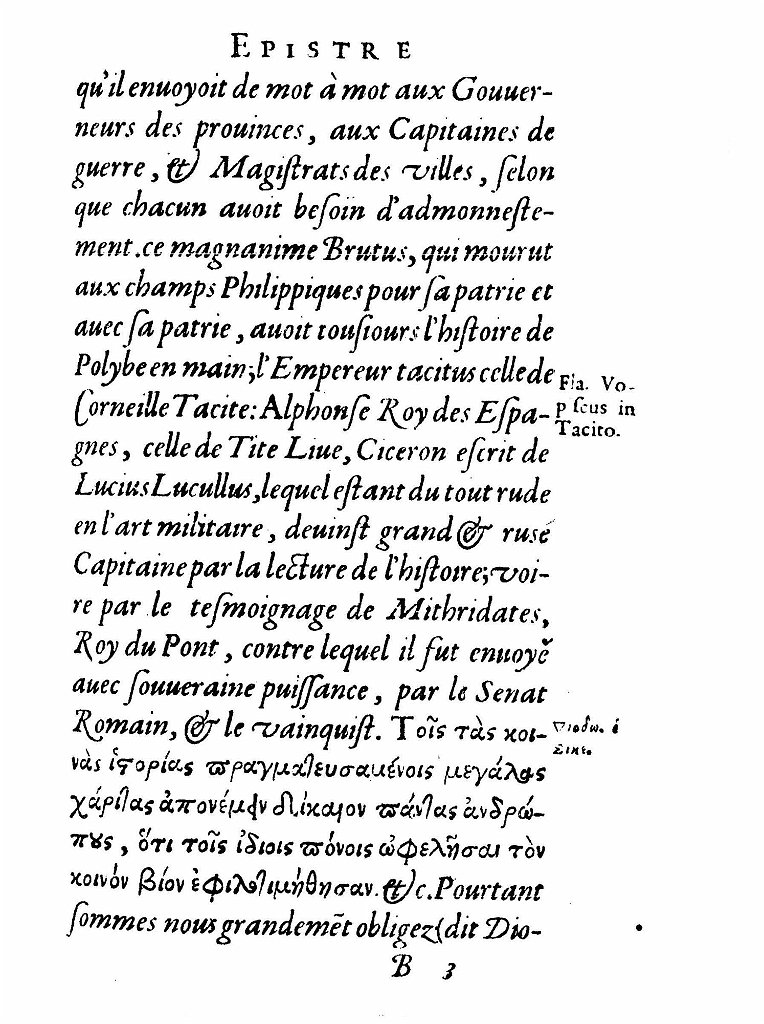 EPISTRE
qu'il enuoyoit de mot à mot aux Gouuer-
neurs des prouinces, aux Capitaines de
guerre, & Magiſtrats des villes, ſelon
que chacun auoit beſoin d'admonneſte-
ment.ce magnanime Brutus, qui mourut
aux champs Philippiques pour ſa patrie et
auec ſa patrie, auoit touſiours l'hiſtoire de
Polybe en main; l'Empereur tacitus celle de
Fla. Vo-
Corneille Tacite: Alphonſe Roy des Eſpa-
pſcus in
Tacito.
gnes, celle de Tite Liue, Ciceron eſcrit de
Lucius Lucullus, lequel eſtant du tout rude
en l'art militaire, deuinſt grand & rusé
Capitaine par la lecture de l'hiſtoire; voi-
re par le teſmoignage de Mithridates,
Roy du Pont, contre lequel il fut enuoyé
auec ſouueraine puiſſance, par le Senat
Romain, & le vainquiſt. Τοῖς τὰς κοι-
νὰς ἱστορίας πραγματευσαμένοις μεγάλας
χάριτας ἀπονέμειν δίκαιον πάντας ἀνθρώ-
πους, ὅτι τοῖς ἰδίοις πόνοις ὠφελῆσαι τὸν
κοινὸν βίον ἐφιλοτιμήθησαν. &c. Pourtant
ſommes nous grandemẽt obligez (dit Dio-
B 3